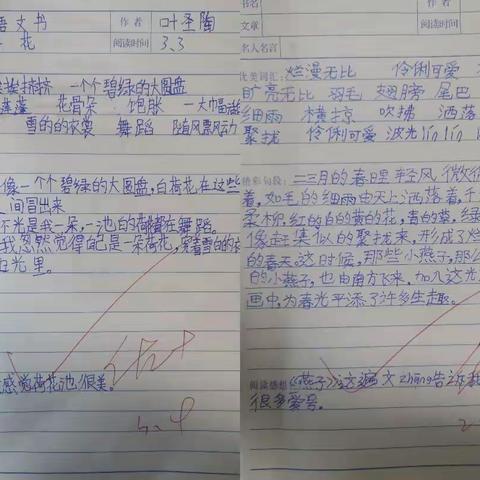 语文书
作者 叶圣陶
花
阅读时间 3、3
挨挨挤挤 一个个碧绿的大圆盘
花骨朵 饱胀 一大幅
雪白的衣裳 舞蹈 随风飘动
像一个个碧绿的大圆盘,白荷花在这些
间冒出来
不光是我一朵,一池的荷花都在舞蹈。
我忽然觉得自己是一朵荷花,穿着雪白的衣
阳光里。
感觉荷花池很美。
优+
3、4
书名
文章
名人名言
优美词汇: 烂漫无比 伶俐可爱
旷亮无比 羽毛 翅膀 尾巴
细雨 横掠 吹拂 洒落
聚拢 伶俐可爱 波光lín lín
精彩句段: 二三月的春日里轻风微微
着,如毛的细雨由天上洒落着,千
柔柳,红的白的黄的花,青的草,绿
像赶集似的聚拢来,形成了烂
的春天。这时候,那些小燕子,那么
的小燕子,也由南方飞来,加入这光
画中,为春光平添了许多生趣。
阅读感想:《燕子》这篇文zhāng告诉我
很多爱号。